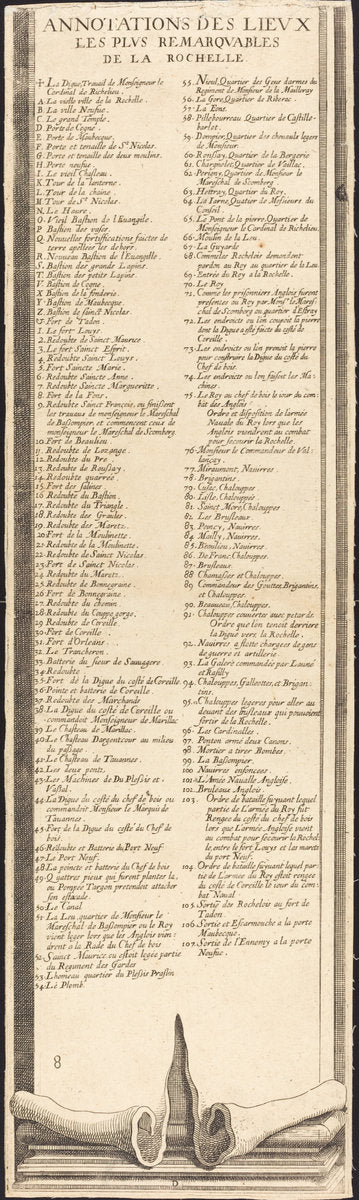 ANNOTATIONS DES LIEVX
LES PLVS REMARQVABLES
DE LA ROCHELLE.
La Digue, Travail de Monseigneur le
Cardinal de Richelieu.
A. La vielle ville de la Rochelle.
B. La ville Neufue.
C. Le grand Temple.
D. Porte de Cogne.
E. Porte de Maubecque.
F. Porte et tenaille de St. Nicolas.
G. Porte et tenaille des deux moulins.
H. Porte neufue.
I. Le vieil Chasteau.
K. Tour de la lanterne.
L. Tour de la chaine.
M. Tour de St. Nicolas.
N. Le Havre.
O. Vieil Bastion de l'Euangile.
P. Bastion des vases.
Q. Nouvelles fortifications faictes de
terre apellees les dehors.
R. Nouveau Bastion de l'Euangille.
S. Bastion des grands Lapins.
T. Bastion des petits Lapins.
V. Bastion de Cogne.
X. Bastion de la fonderie.
Y. Bastion de Maubecque.
Z. Bastion de sainct Nicolas.
Fort de Tadon.
1. Le fort Louys.
2. Redoubte de Sainct Maurice
3. Le fort Sainct Esprit.
4. Redoubte Sainct Louys.
5. Fort Saincte Marie.
6. Redoubte Saincte Anne.
7. Redoubte Saincte Margueritte.
8. Fort de la Fons.
9. Redoubte Sainct François, ou finissent
les travaux de monseigneur le Mareschal
de Bassompier, et commencent ceux de
monseigneur le Mareschal de Scomberg.
10. Fort de Beaulieu.
11. Redoubte de Lozange.
12. Redoubte du Pre.
13. Redoubte de Roussay.
14. Redoubte quarree.
15. Fort des salines
16. Redoubte du Bastion.
17. Redoubte du Triangle.
18. Redoubte des Grolles.
19. Redoubte des Maretz.
20. Fort de la Moulinette.
21. Redoubte de la Moulinette.
22. Redoubte de Sainct Nicolas.
23. Fort de Sainct Nicolas.
24. Redoubte du Maretz.
25. Redoubte de Bonnegraine.
26. Fort de Bonnegraine.
27. Redoubte du chemin.
28. Redoubte du Couppe gorge.
29. Redoubte de Coreille.
30. Fort de Coreille.
31. Fort d'Orleans.
32. Le Trancheron.
33. Batterie du sieur de
34. Redoubte
35. Fort de la Digue du costé de Coreille
36. Pointe et batterie de Coreille.
37. Redoubte des Marchands
38. La Digue du coste de Coreille ou
commandoit Monseigneur de Marillac
39. Le Chasteau de Marillac.
40. Le Chasteau Dargencour au milieu
du passage.
41. Le Chasteau de Tavannes.
42. Les deux ponts.
43. Les Machines de Du Plessis et
Vassal.
44. La Digue du costé du chef de bois ou
commandoit Monsieur le Marquis de
Tavannes.
45. Fort de la Digue du coste du Chef de
bois.
46. Redoubte et Batterie du Port Neuf
47. Le Port Neuf.
48. La pointe et batterie du Chef de bois
49. Quattres navires qui furent plantes la,
ou Pompee Turgon pretendoit attacher
son estacade.
50. Le Canal
51. La Leu quartier de Monsieur le
Mareschal de Bassompier ou le Roy
vient loger lors que les Anglois vin-
drent a la Rade du Chef de bois
52. Sainct Maurice ou estoit logée partie
du Regiment des Gardes
53. Lhomeau quartier du Plessis Praslin
54. Le Plomb.
55. Nieul, Quartier des Gens darmes du
Regiment de Monsieur de la Mailleray
56. La Gore, Quartier de Riberac.
57. La Fons.
58. Pilleboureau, Quartier de Castille-
barlot.
59. Dompier, Quartier des chevauls legers
de Monsieur.
60. Ronssay, Quartier de la Bergerie
61. Chargniolet, Quartier de Vaillac,
62. Perigny, Quartier de Monsieur le
Mareschal de Scomberg
63. Hettray, Quartier du Roy.
64. La Iarne, Quartier de Messieurs du
Conseil.
65. Le Pont de la pierre, Quartier de
Monseigneur le Cardinal de Richelieu.
66. Moulin de la Leu
67. La Guyarde
68. Comme les Rochelois demandent
pardon au Roy au quartier de la Leu
69. Entree du Roy a la Rochelle.
70. Le Roy
71. Comme les prisonniers Anglois furent
presentes au Roy par Monsr. le Mares-
chal de Scomberg au quartier
72. Les endroicts ou l'on coupoit la pierre
dont la Digue a este faicte du costé de
Coreille.
73. Les endroicts ou l'on prenoit la pierre
pour construire la Digue du costé du
Chef de bois.
74. Les endroicts ou l'on faisoit les Ma-
chines.
75. Le Roy au chef de bois le iour du com-
bat des Anglois.
Ordre et disposition de l'armée
Navale du Roy lors que les
Anglois viendrent au combat
pour secourir la Rochelle.
76. Monsieur le Commandeur de Val-
lançay.
77. Miraumont, Navires.
78. Brigantins
79. Cusac, Chalouppes.
80. Lisle, Chalouppes
81. Sainct More, Chalouppes
82. Les Brusleaux
83. Poincy, Navires
84. Mailly, Navires.
85. Beaulieu, Navires.
86. De Franc, Chalouppes.
87. Brusleaux
88. Chamasier et Chalouppes.
89. Commandeur des Gouttes, Brigantins,
et Chalouppes.
90. Beauveau, Chalouppes.
91. Chalouppes couvertes avec petar de
Ordre que l'on tenoit derriere
la Digue vers la Rochelle.
92. Navires a flotte chargees de gens
de guerre et artillerie.
93. La Galere commandée par Launé
et Rasilly
94. Chalouppes, Galliottes, et Brigan-
tins.
95. Chalouppes legeres pour aller au
devant des brusleaux qui pouvoient
sortir de la Rochelle.
96. Les Cardinalles.
97. Ponton armé deux Canons.
98. Mortier a tirer Bombes.
99. La Bassompier.
100. Navires enfoncees
101. L'Armée Navalle Angloise.
102. Brusleaux Anglois.
103. Ordre de bataille suyvant lequel
partie de L'armée du Roy fut
Rengee du costé du chef de bois
lors que l'Armée Angloise vient
au combat pour secourir la Rochel
le, entre le fort Louys et les marets
du port Neuf.
104. Ordre de bataille suyvant lequel par-
tie de L'armée du Roy estoit rengée
du costé de Coreille le iour du com
bat Naval
105. Sortie des Rochelois au fort de
Tadon
106. Sortie et Escarmouche a la porte
Maubecque.
107. Sortie de l'Ennemy a la porte
Neufue.
8
D